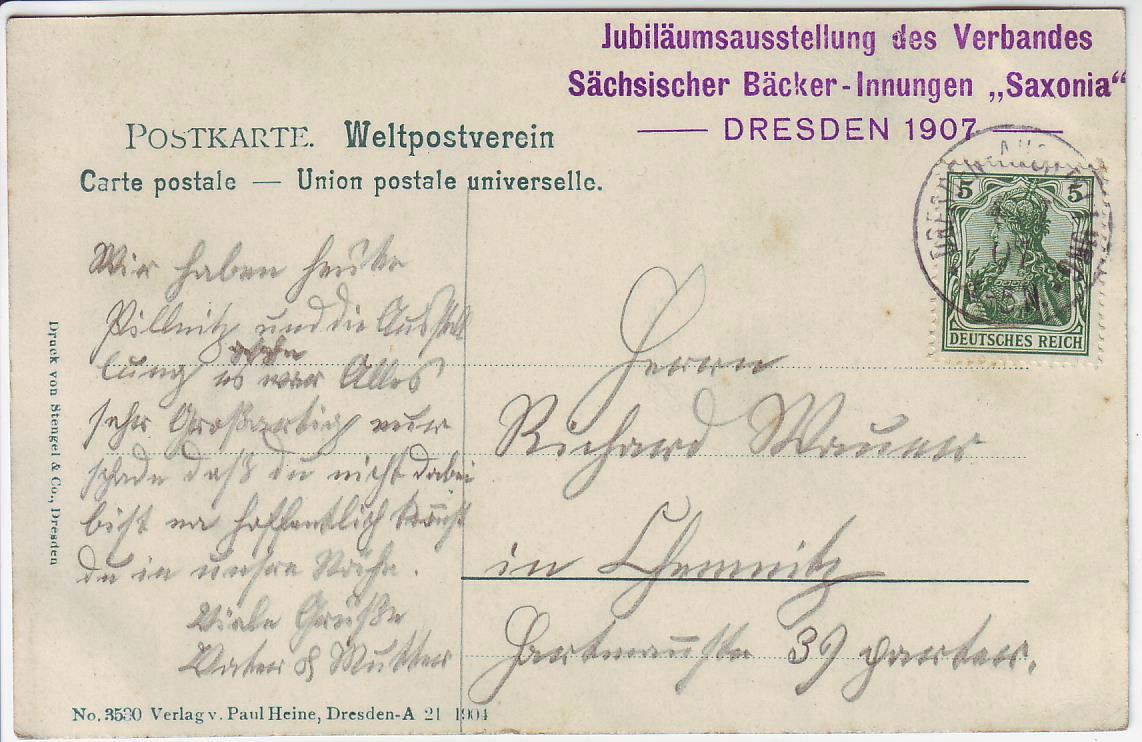 Jubiläumsausstellung des Verbandes
Sächsischer Bäcker-Innungen „Saxonia“
DRESDEN 1907
POSTKARTE. Weltpostverein
Carte postale — Union postale universelle.
5 5
DEUTSCHES REICH
Wir haben heute
Pillnitz und die Ausstel
lung
es war Alles
sehr Großartig nur
schade daß du nicht dabei
bist na hoffentlich kommst
du in unsre Nähe.
Viele Grüße
Vater & Mutter
Herrn
Richard Wauer
in Chemnitz
Hartmannstr 39 parter.
Druck von Stengel & Co., Dresden
No. 3530 Verlag v. Paul Heine, Dresden-A 21 1904